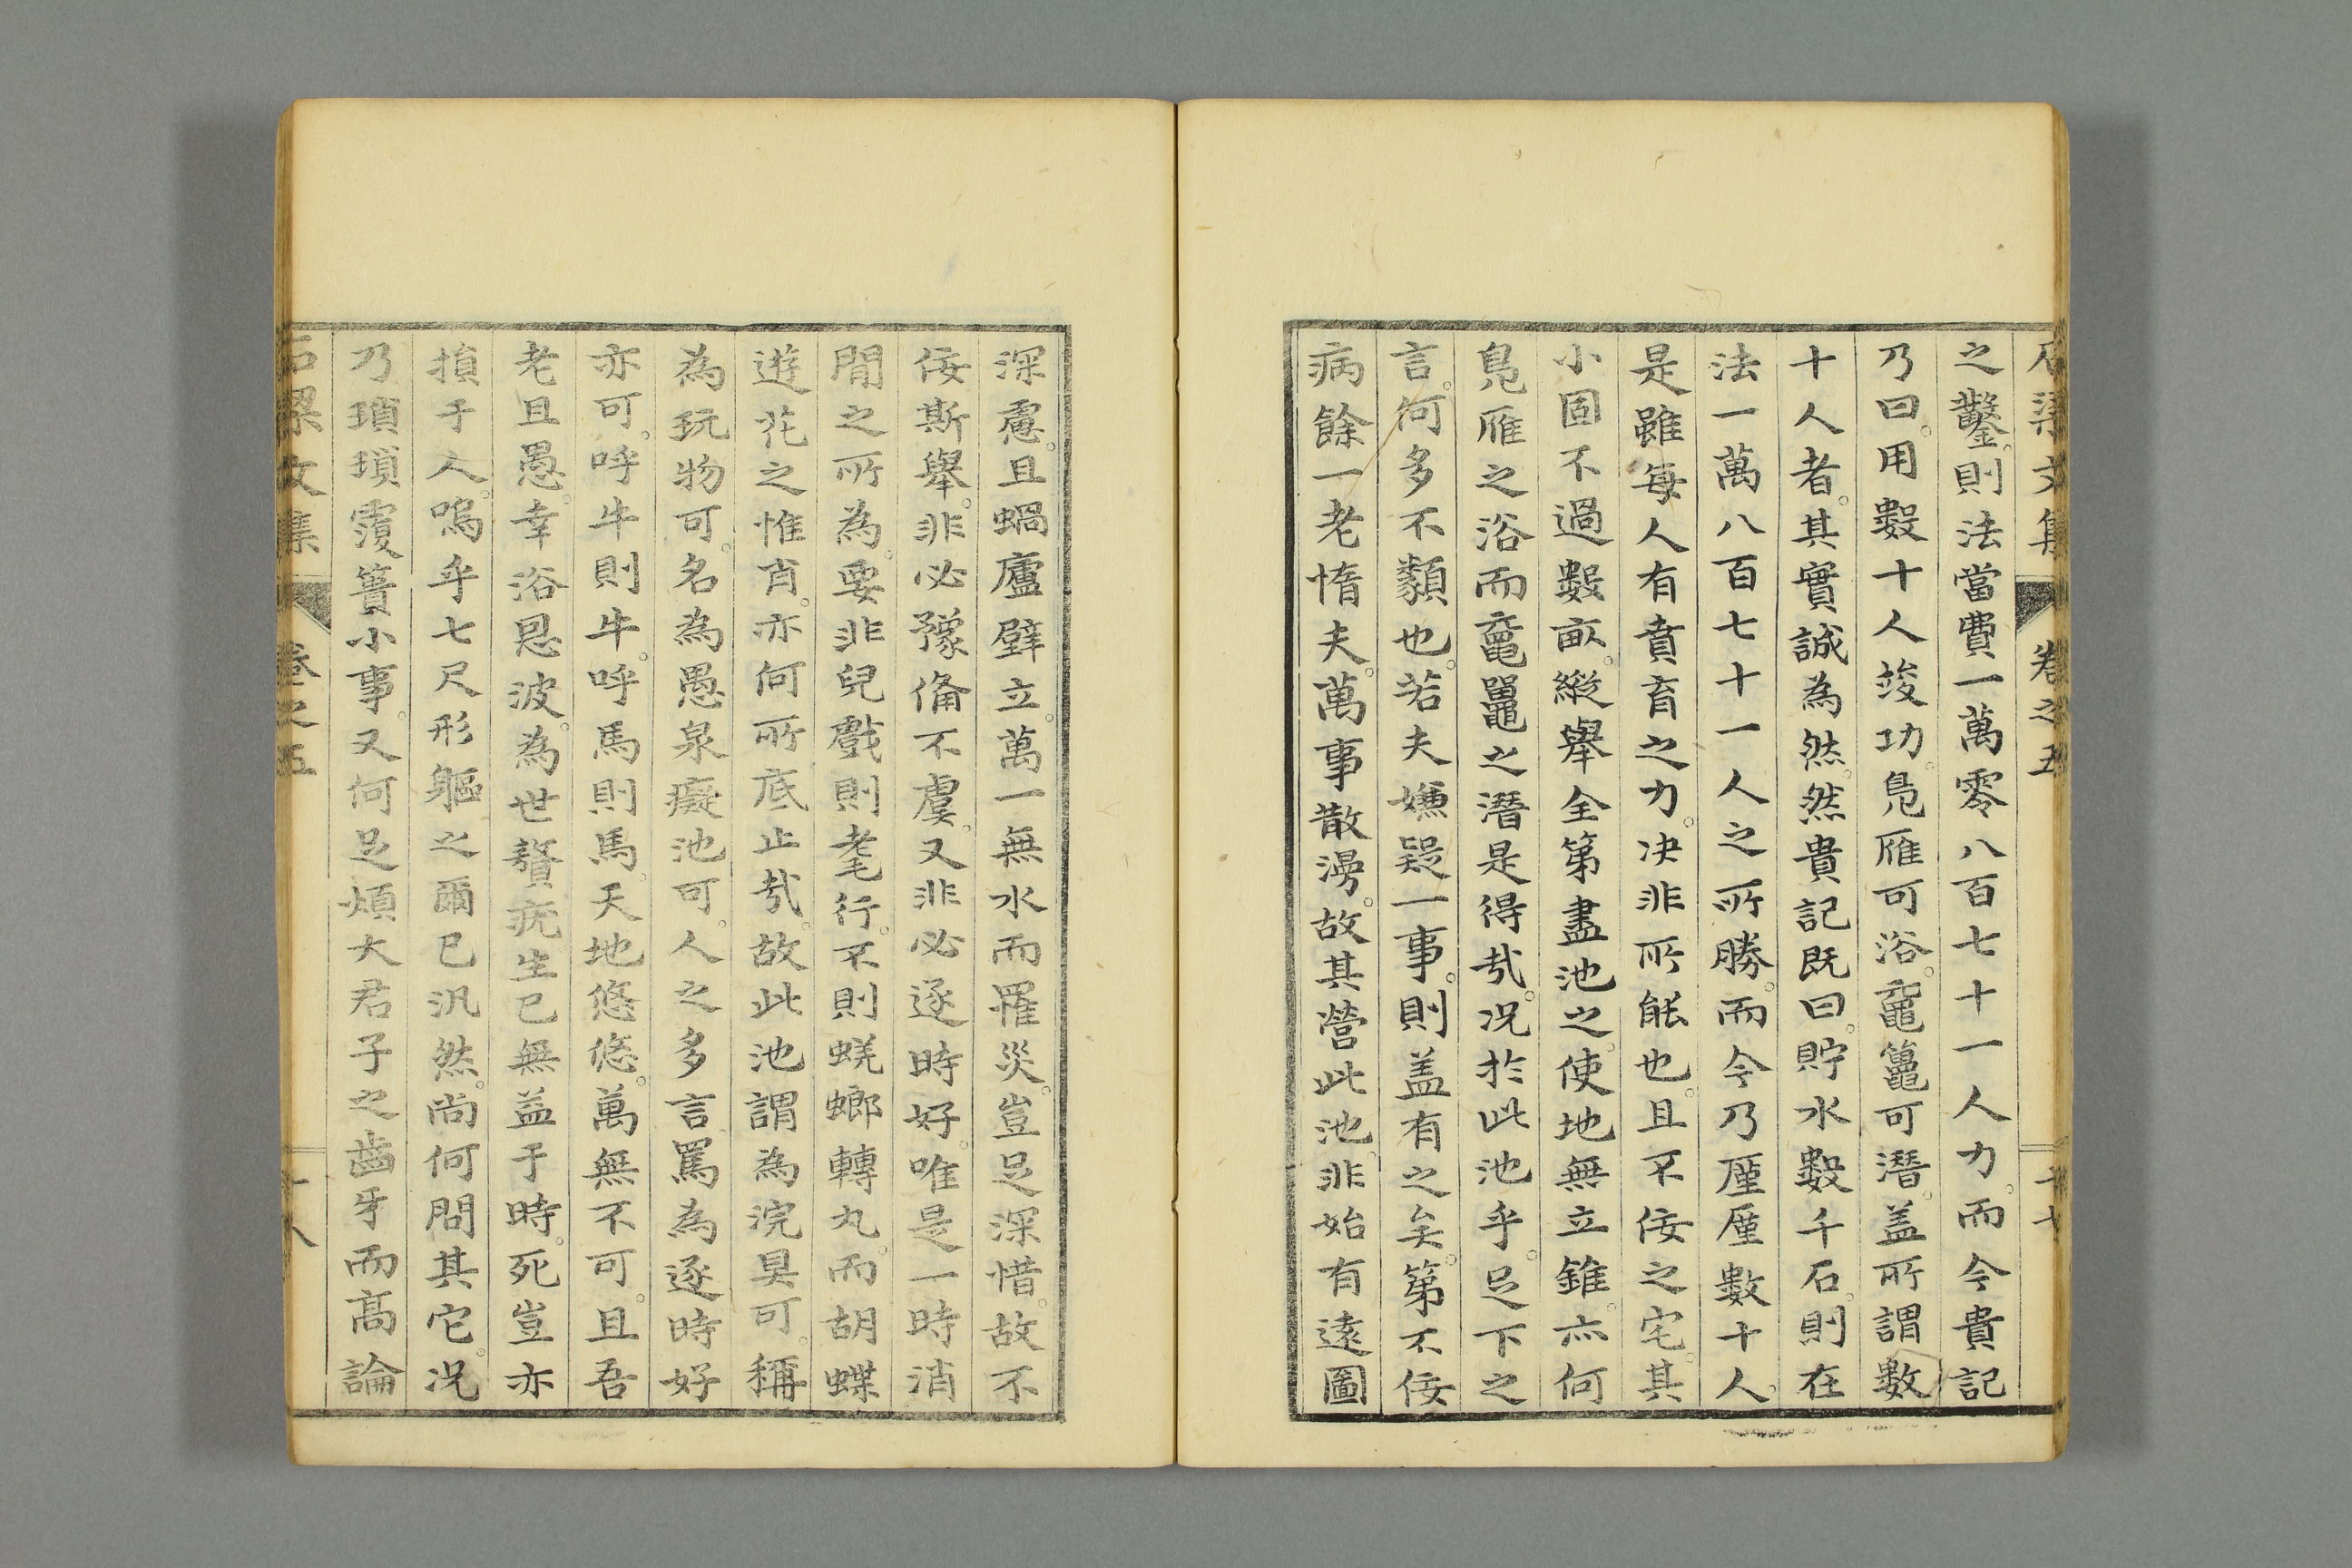 石梁文集 卷之五 十七
之鑿。則法當費一萬零八百七十一人力。而今貴記
乃曰。用數十人竣功。鳧雁可浴。黿鼉可潛。蓋所謂數
十人者。其實誠為然。然貴記既曰。貯水數千石。則在
法一萬八百七十一人之所勝。而今乃厪厪數十人。
是雖每人有賁育之力。决非所能也。且不佞之宅。其
小固不過數畝。縱舉全第盡池之。使地無立錐。亦何
鳧雁之浴而黿鼉之潛是得哉。况於此池乎。足下之
言。何多不類也。若夫嫌疑一事。則盖有之矣。第不佞
病餘一老惰夫。萬事散漫。故其營此池。非始有遠圖
深慮。且蝸廬壁立。萬一無水而罹災。豈足深惜。故不
佞斯舉。非必豫備不虞。又非必逐時好。唯是一時消
閒之所為。要非兒戲則耄行。不則蜣螂轉丸。而胡蝶
遊花之惟肖。亦何所底止哉。故此池謂為浣臭可。稱
為玩物可。名為愚泉癡池可。人之多言罵為逐時好
亦可。呼牛則牛。呼馬則馬。天地悠悠。萬無不可。且吾
老且愚。幸浴恩波。為世贅疣。生已無益于時。死豈亦
損于人。嗚乎七尺形軀之爾已汎然。尚何問其它。况
乃瑣瑣覆簣小事。又何足煩大君子之齒牙而高論
石梁文集 卷之五 十八